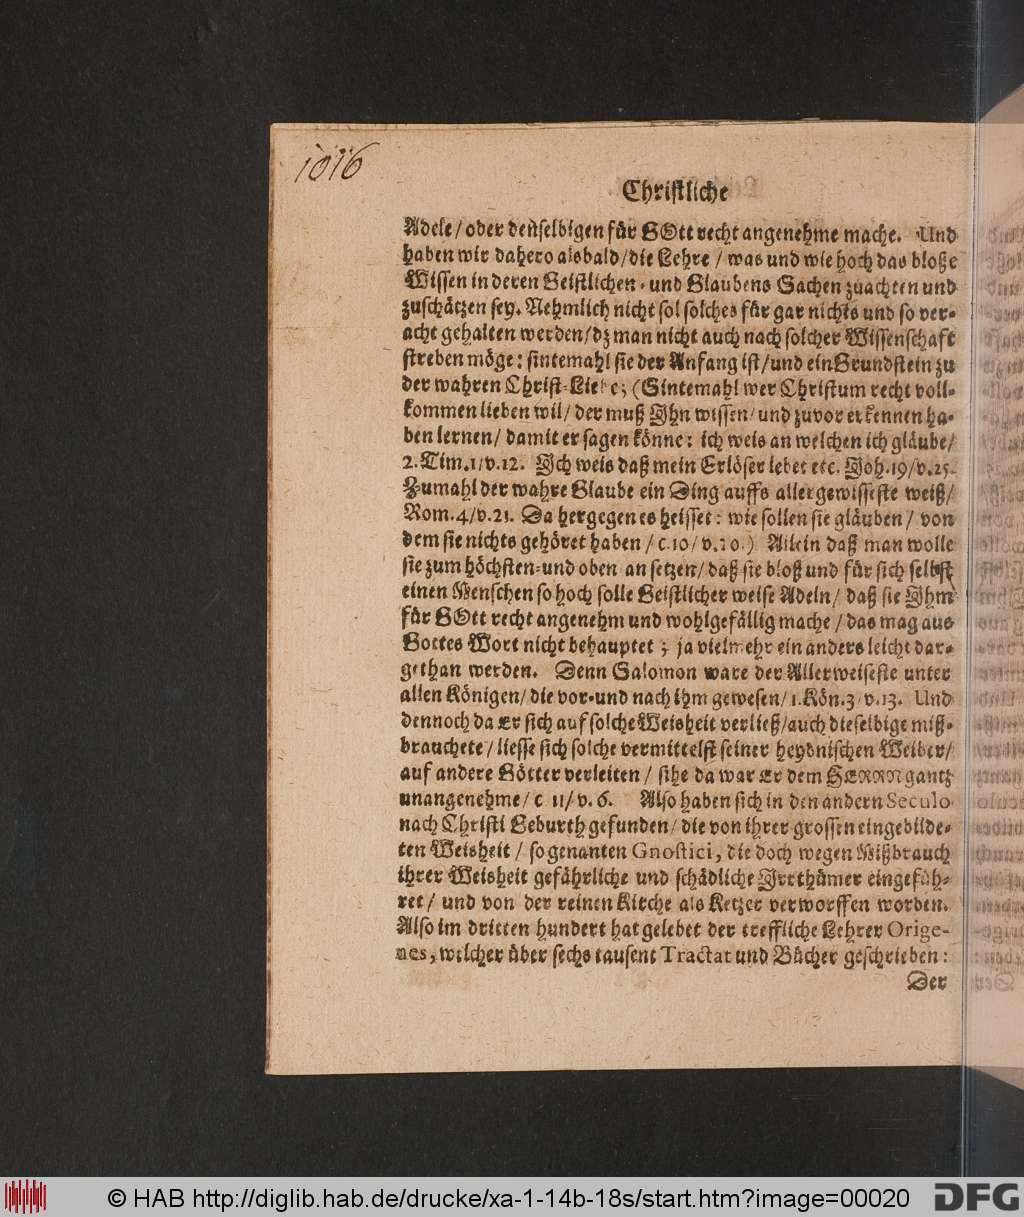 1016
Christliche
Adele / oder deñselbigen für GOtt recht angenehme mache. Und
haben wir dahero alsbald / die Lehre / was und wie hoch das bloße
Wissen in deren Geistlichen- und Glaubens Sachen zuachten und
zuschätzen sey. Nehmlich nicht sol solches für gar nichts und so ver-
acht gehalten werden / dz man nicht auch nach solcher Wissenschaft
streben möge: sintemahl sie der Anfang ist / und ein Grundstein zu
der wahren Christ-Liebe; (Sintemahl wer Christum recht voll-
kommen lieben wil / der muß Ihn wissen / und zuvor erkennen ha-
ben lernen / damit er sagen könne: ich weis an welchen ich gläube /
2. Tim. 1 / v. 12. Ich weis daß mein Erlöser lebet etc. Joh. 19 / v. 25.
Zumahl der wahre Glaube ein Ding auffs allergewisseste weiß /
Rom. 4 / v. 21. Da hergegen es heisset: wie sollen sie gläuben / von
dem sie nichts gehöret haben / c. 10 / v. 10.) Allein daß man wolle
sie zum höchsten- und oben an setzen / daß sie bloß und für sich selbst
einen Menschen so hoch solle Geistlicher weise Adeln / daß sie Ihm
für GOtt recht angenehm und wohlgefällig mache / das mag aus
Gottes Wort nicht behauptet ; ja vielmehr ein anders leicht dar-
gethan werden. Denn Salomon ware der Allerweiseste unter
allen Königen / die vor- und nach ihm gewesen / 1. Kön. 3 / v. 13. Und
dennoch da Er sich auf solche Weisheit verließ / auch dieselbige miß-
brauchete / liesse sich solche vermittelst seiner heydnischen Weiber /
auf andere Götter verleiten / sihe da war Er dem HERRN gantz
unangenehme / c 11 / v. 6. Also haben sich in den andern Seculo
nach Christi Geburth gefunden / die von ihrer grossen eingebilde-
ten Weisheit / so genanten Gnostici, die doch wegen Mißbrauch
ihrer Weisheit gefährliche und schädliche Irrthümer eingefüh-
ret / und von der reinen Kirche als Ketzer verworffen worden.
Also im dritten hundert hat gelebet der treffliche Lehrer Orige-
nes, welcher über sechs tausent Tractat und Bücher geschrieben:
Der
© HAB http://diglib.hab.de/drucke/xa-1-14b-18s/start.htm?image=00020
DFG